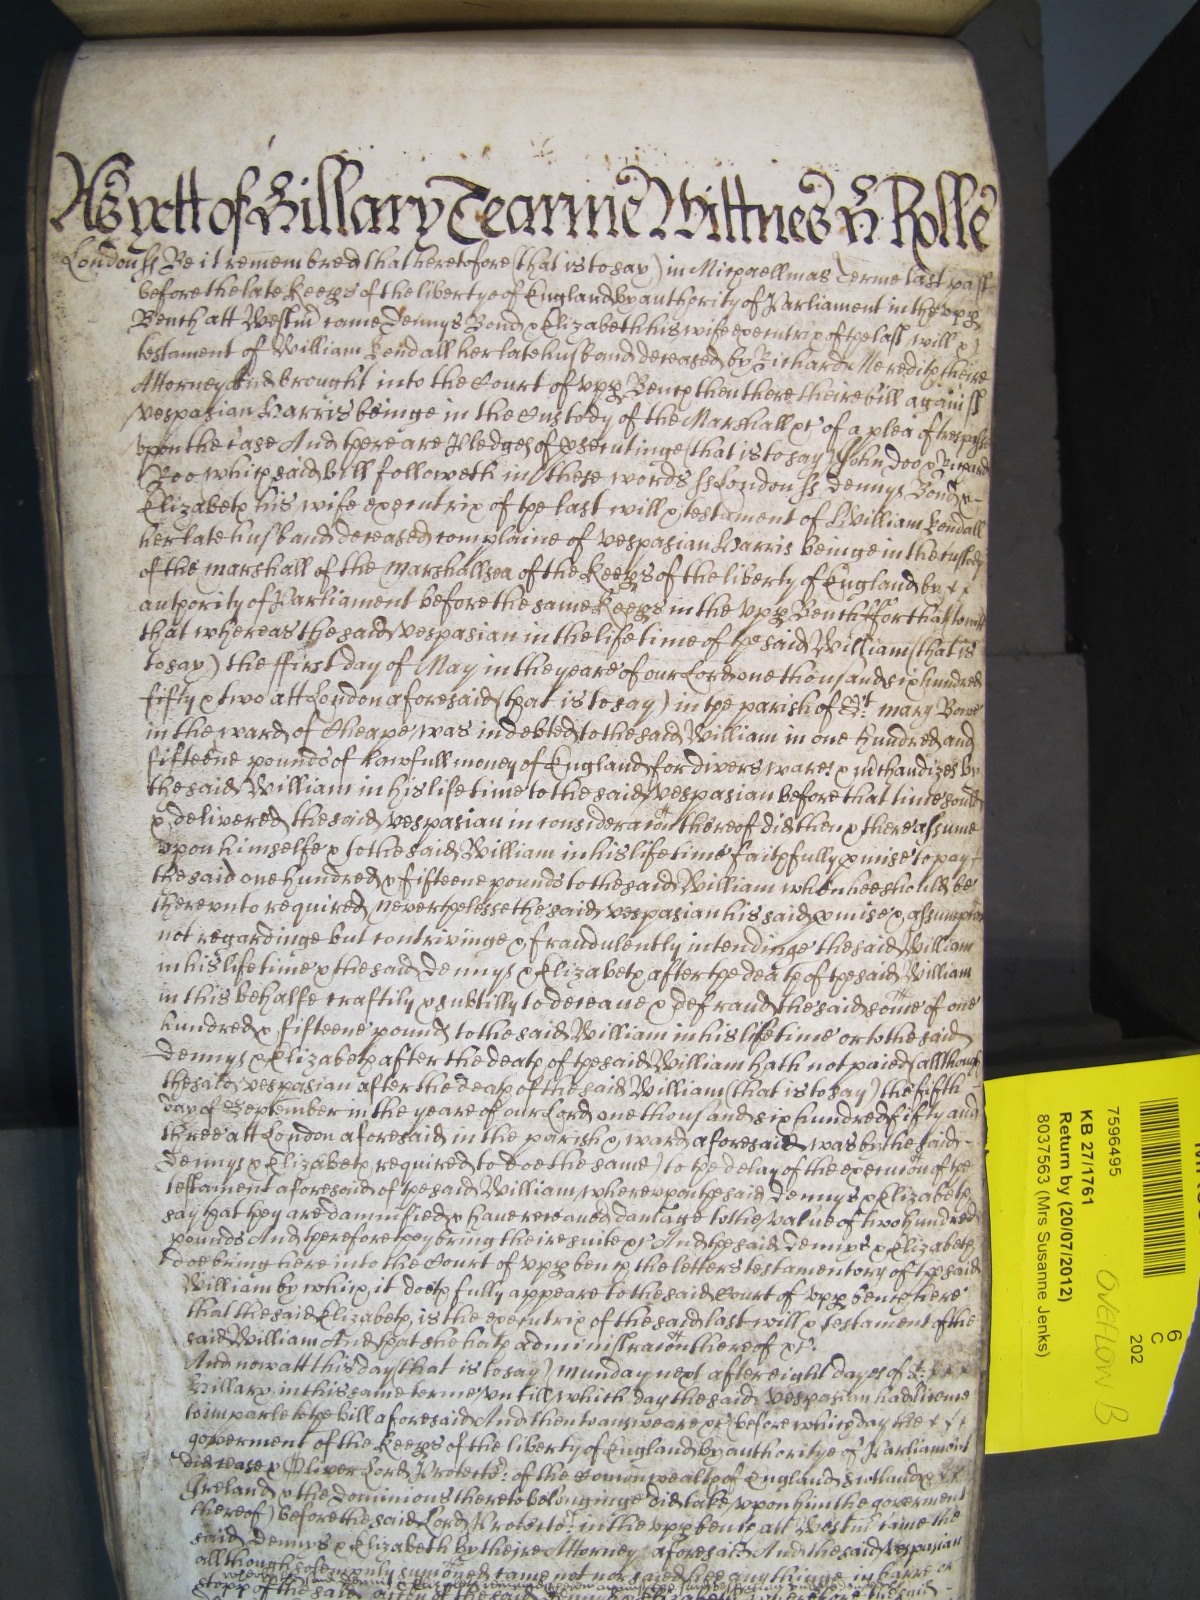 As yett of Hillary Tearme Wittnes H: Rolle
London ss Be it remembred that heretofore (that is to say) in Michaellmas Terme last past
before the late Keeps of the liberty of England by authority of Parliament in the vpp
Bench att Westm came Dennys Bond & Elizabeth his wife executrix of the last will &
testament of William Kendall her late husband deceased by Richard Meredith theire
Attorney And brought into the Court of vpp Bench then there theire bill against
Vespasian Harris beinge in the Custody of the Marshall &c of a plea of trespasse
vpon the case And there are Pledges of psecutinge (that is to say) John Doo & Richard
Roo which said bill followeth in these words ss London ss Dennys Bond &
Elizabeth his wife executrix of the last will & testament of William Kendall
her late husband deceased complaine of Vespasian Harris beinge in the custody
of the marshall of the Marshallsea of the Keeps of the liberty of England by
authority of Parliament before the same Keeps in the vpp Bench ffor that
that whereas the said Vespasian in the life time of the said William (that is
to say) the ffirst day of May in the yeare of our Lord one thousand six hundred
fifty & two att London aforesaid (that is to say) in the parish of St. mary Bowe
in the ward of Cheape was indebted to the said William in one hundred and
fifteene pounds of Lawfull money of England for divers wares & mchandizes by
the said William in his life time to the said Vespasian before that time sould
& delivered the said Vespasian in consideracon thereof did then & there assume
vpon himselfe & to the said William in his life time faithfully pmise to pay
the said one hundred & fifteene pounds to the said William when hee should be
therevnto required, neverthelesse the said Vespasian his said pmise & assumpcon
not regardinge but contrivinge & fraudulently intendinge the said William
in his life time & the said Dennys & Elizabeth after the death of the said William
in this behalfe craftily & subtilly to deceaue & defraud the said some of one
hundred & fifteene pounds to the said William in his life time or to the said
Dennys & Elizabeth after the death of the said William hath not paied (although
the said Vespasian after the death of the said William (that is to say) the fifth
day of September in the yeare of our Lord one thousand six hundred fifty and
three att London aforesaid in the parish & ward aforesaid was by the said
Dennys & Elizabeth required to doe the same) to the delay of the execucon of the
testament aforesaid of the said William wherevpon the said Dennys & Elizabeth
say that they are damnified & haue receaued damage to the value of two hundred
pounds And therefore they bring theire suite &c And the said Dennys & Elizabeth
doe bring here into the Court of vpp bench the letters testamentory of the said
William by which it doeth fully appeare to the said Court of vpp bench here
that the said Elizabeth is the executrix of the said last will & testament of the
said William And that she hath administracon thereof &c.
And now att this day (that is to say) Munday next after eight dayes of St.
Hillary in this same terme vntill which day the said Vespasian had licence
to imparle to the bill aforesaid And then to answeare &c before which day the
goverment of the Keeps of the liberty of England by authoritye of Parliament
did cease & Oliver Lord Protector of the Comonwealth of England Scotland &
Ireland & the dominions thereto belonginge did take vpon him the goverment
thereof) before the said Lord Protector in the vpp bench att Westm came the
said Dennys & Elizabeth by theire Attorney aforesaid And the said Vespasian
although solempnly sumoned came not nor said hee any thinge in barre or
stopp of the said accon of the said
7596495
KB 27/1761
Return by (20/07/2012)
8037563 (Mrs Susanne Jenks)
6
C
202
OVERFLOW B